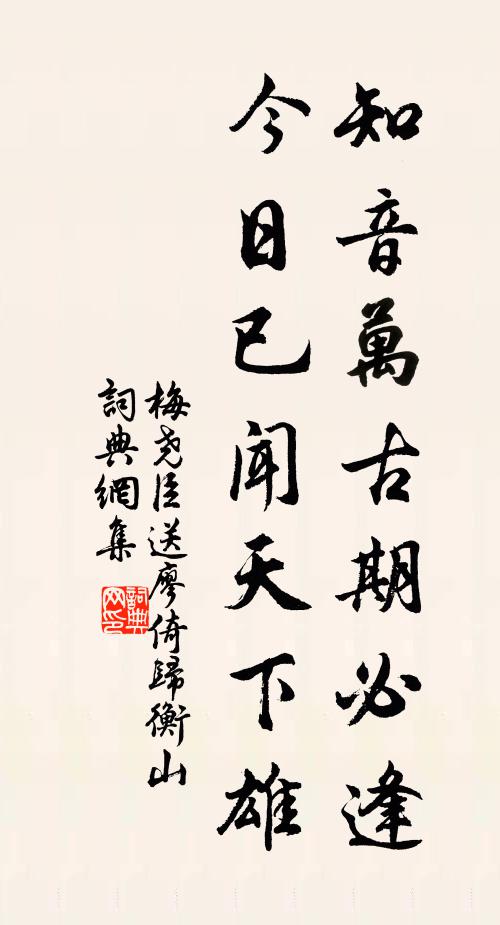 知音萬古期必逢
今日已闻天下雄
梅尧臣送廖倚歸衡山
詞典網集
詞典网印